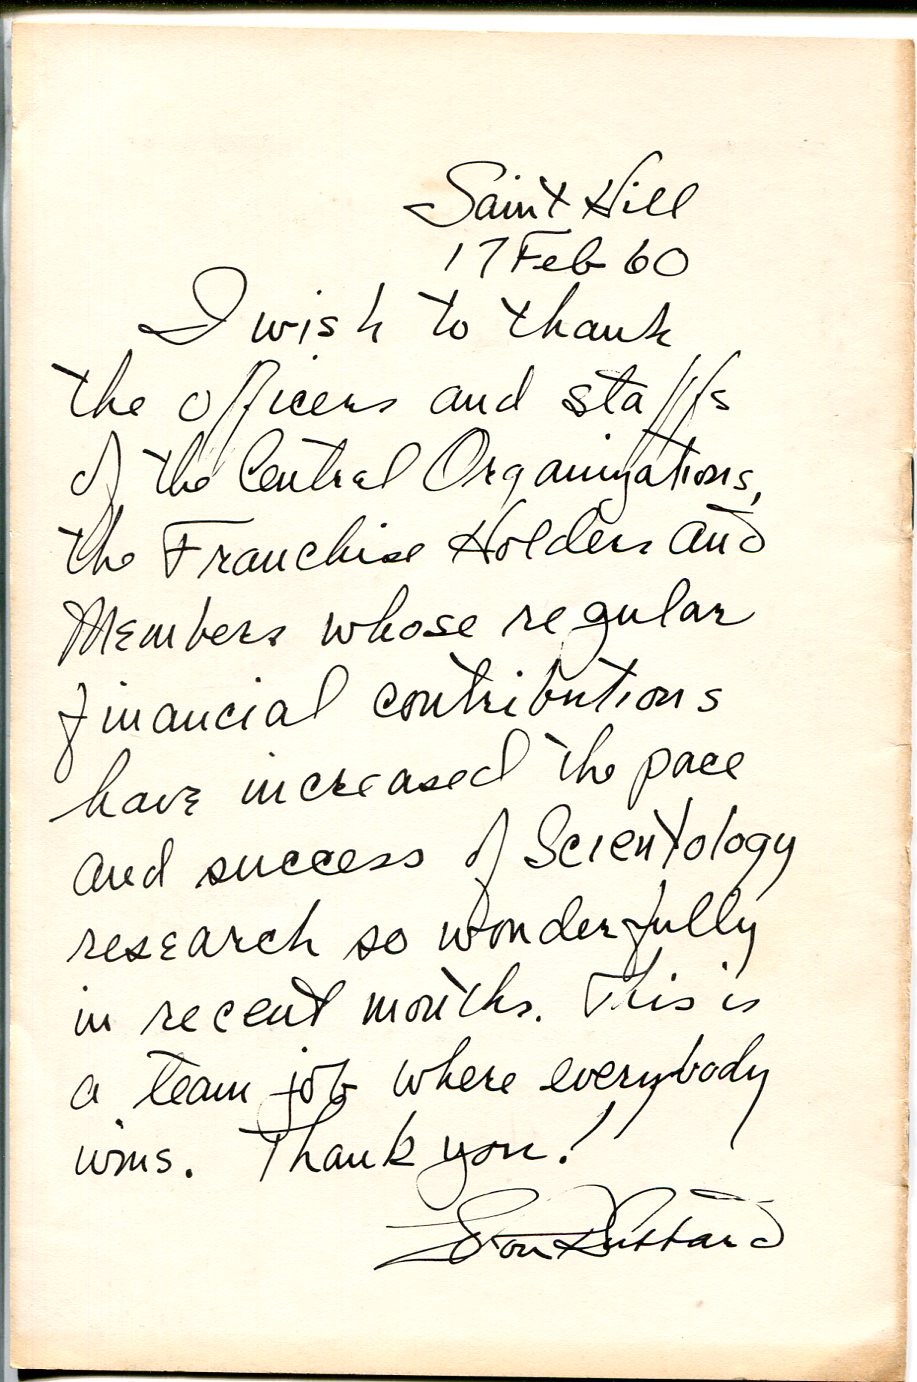 Saint Hill
17 Feb 60
I wish to thank
the officers and staffs
of the Central Organizations,
the Franchise Holders and
Members whose regular
financial contributions
have increased the pace
and success of Scientology
research so wonderfully
in recent months. This is
a team job where everybody
wins. Thank you!
L Ron Hubbard